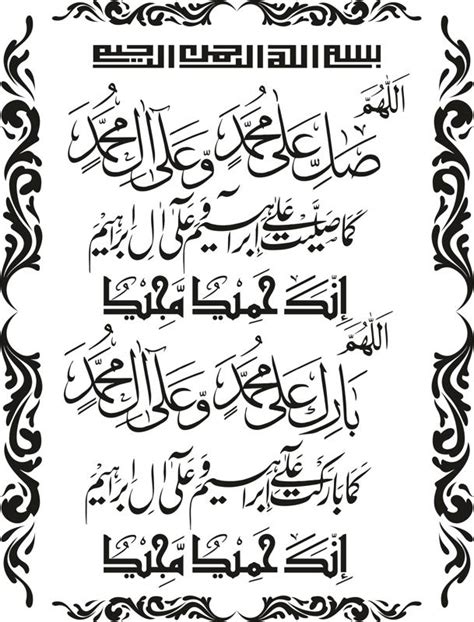 بسم الله الرحمن الرحيم
اللَّهُمَّ
صَلِّ عَلَى مُحَمَّدٍ وَعَلَى آلِ مُحَمَّدٍ
كَمَا صَلَّيْتَ عَلَى إِبْرَاهِيمَ وَعَلَى آلِ إِبْرَاهِيمَ
إِنَّكَ حَمِيدٌ مَجِيدٌ
اللَّهُمَّ
بَارِكْ عَلَى مُحَمَّدٍ وَعَلَى آلِ مُحَمَّدٍ
كَمَا بَارَكْتَ عَلَى إِبْرَاهِيمَ وَعَلَى آلِ إِبْرَاهِيمَ
إِنَّكَ حَمِيدٌ مَجِيدٌ